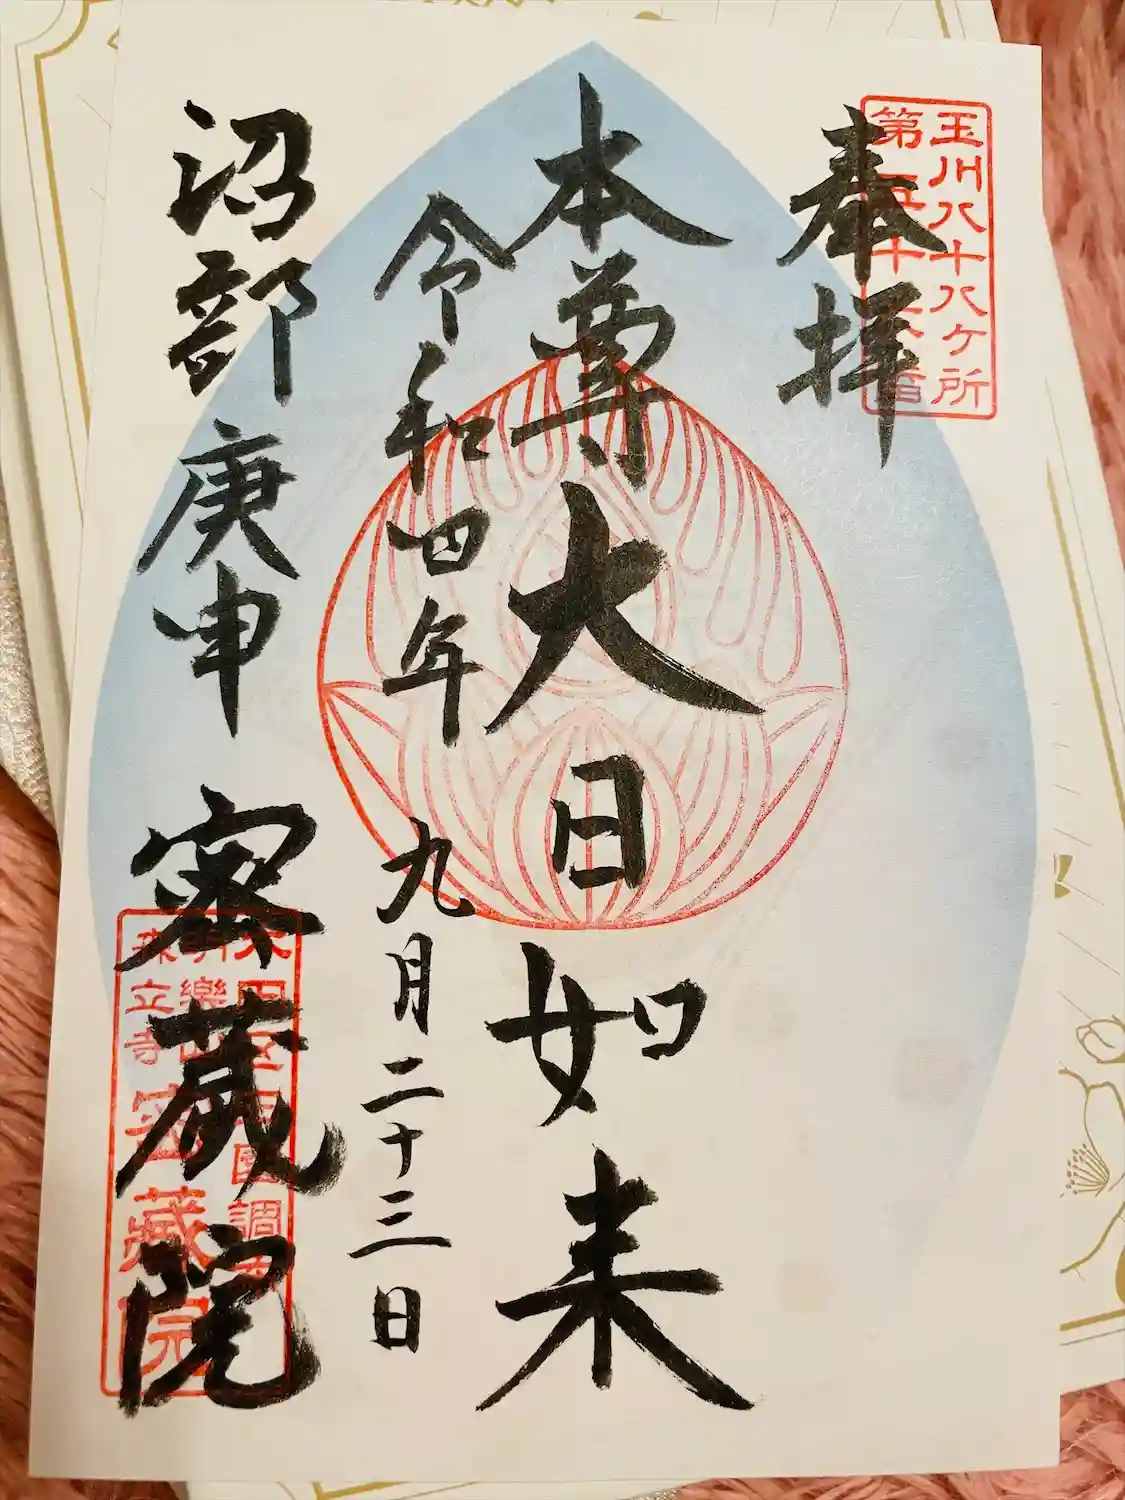 玉川八十八ヶ所
第五十
奉拝
本尊大日如来
令和四年 九月二十三日
沼部 庚申 密蔵院
密藏院